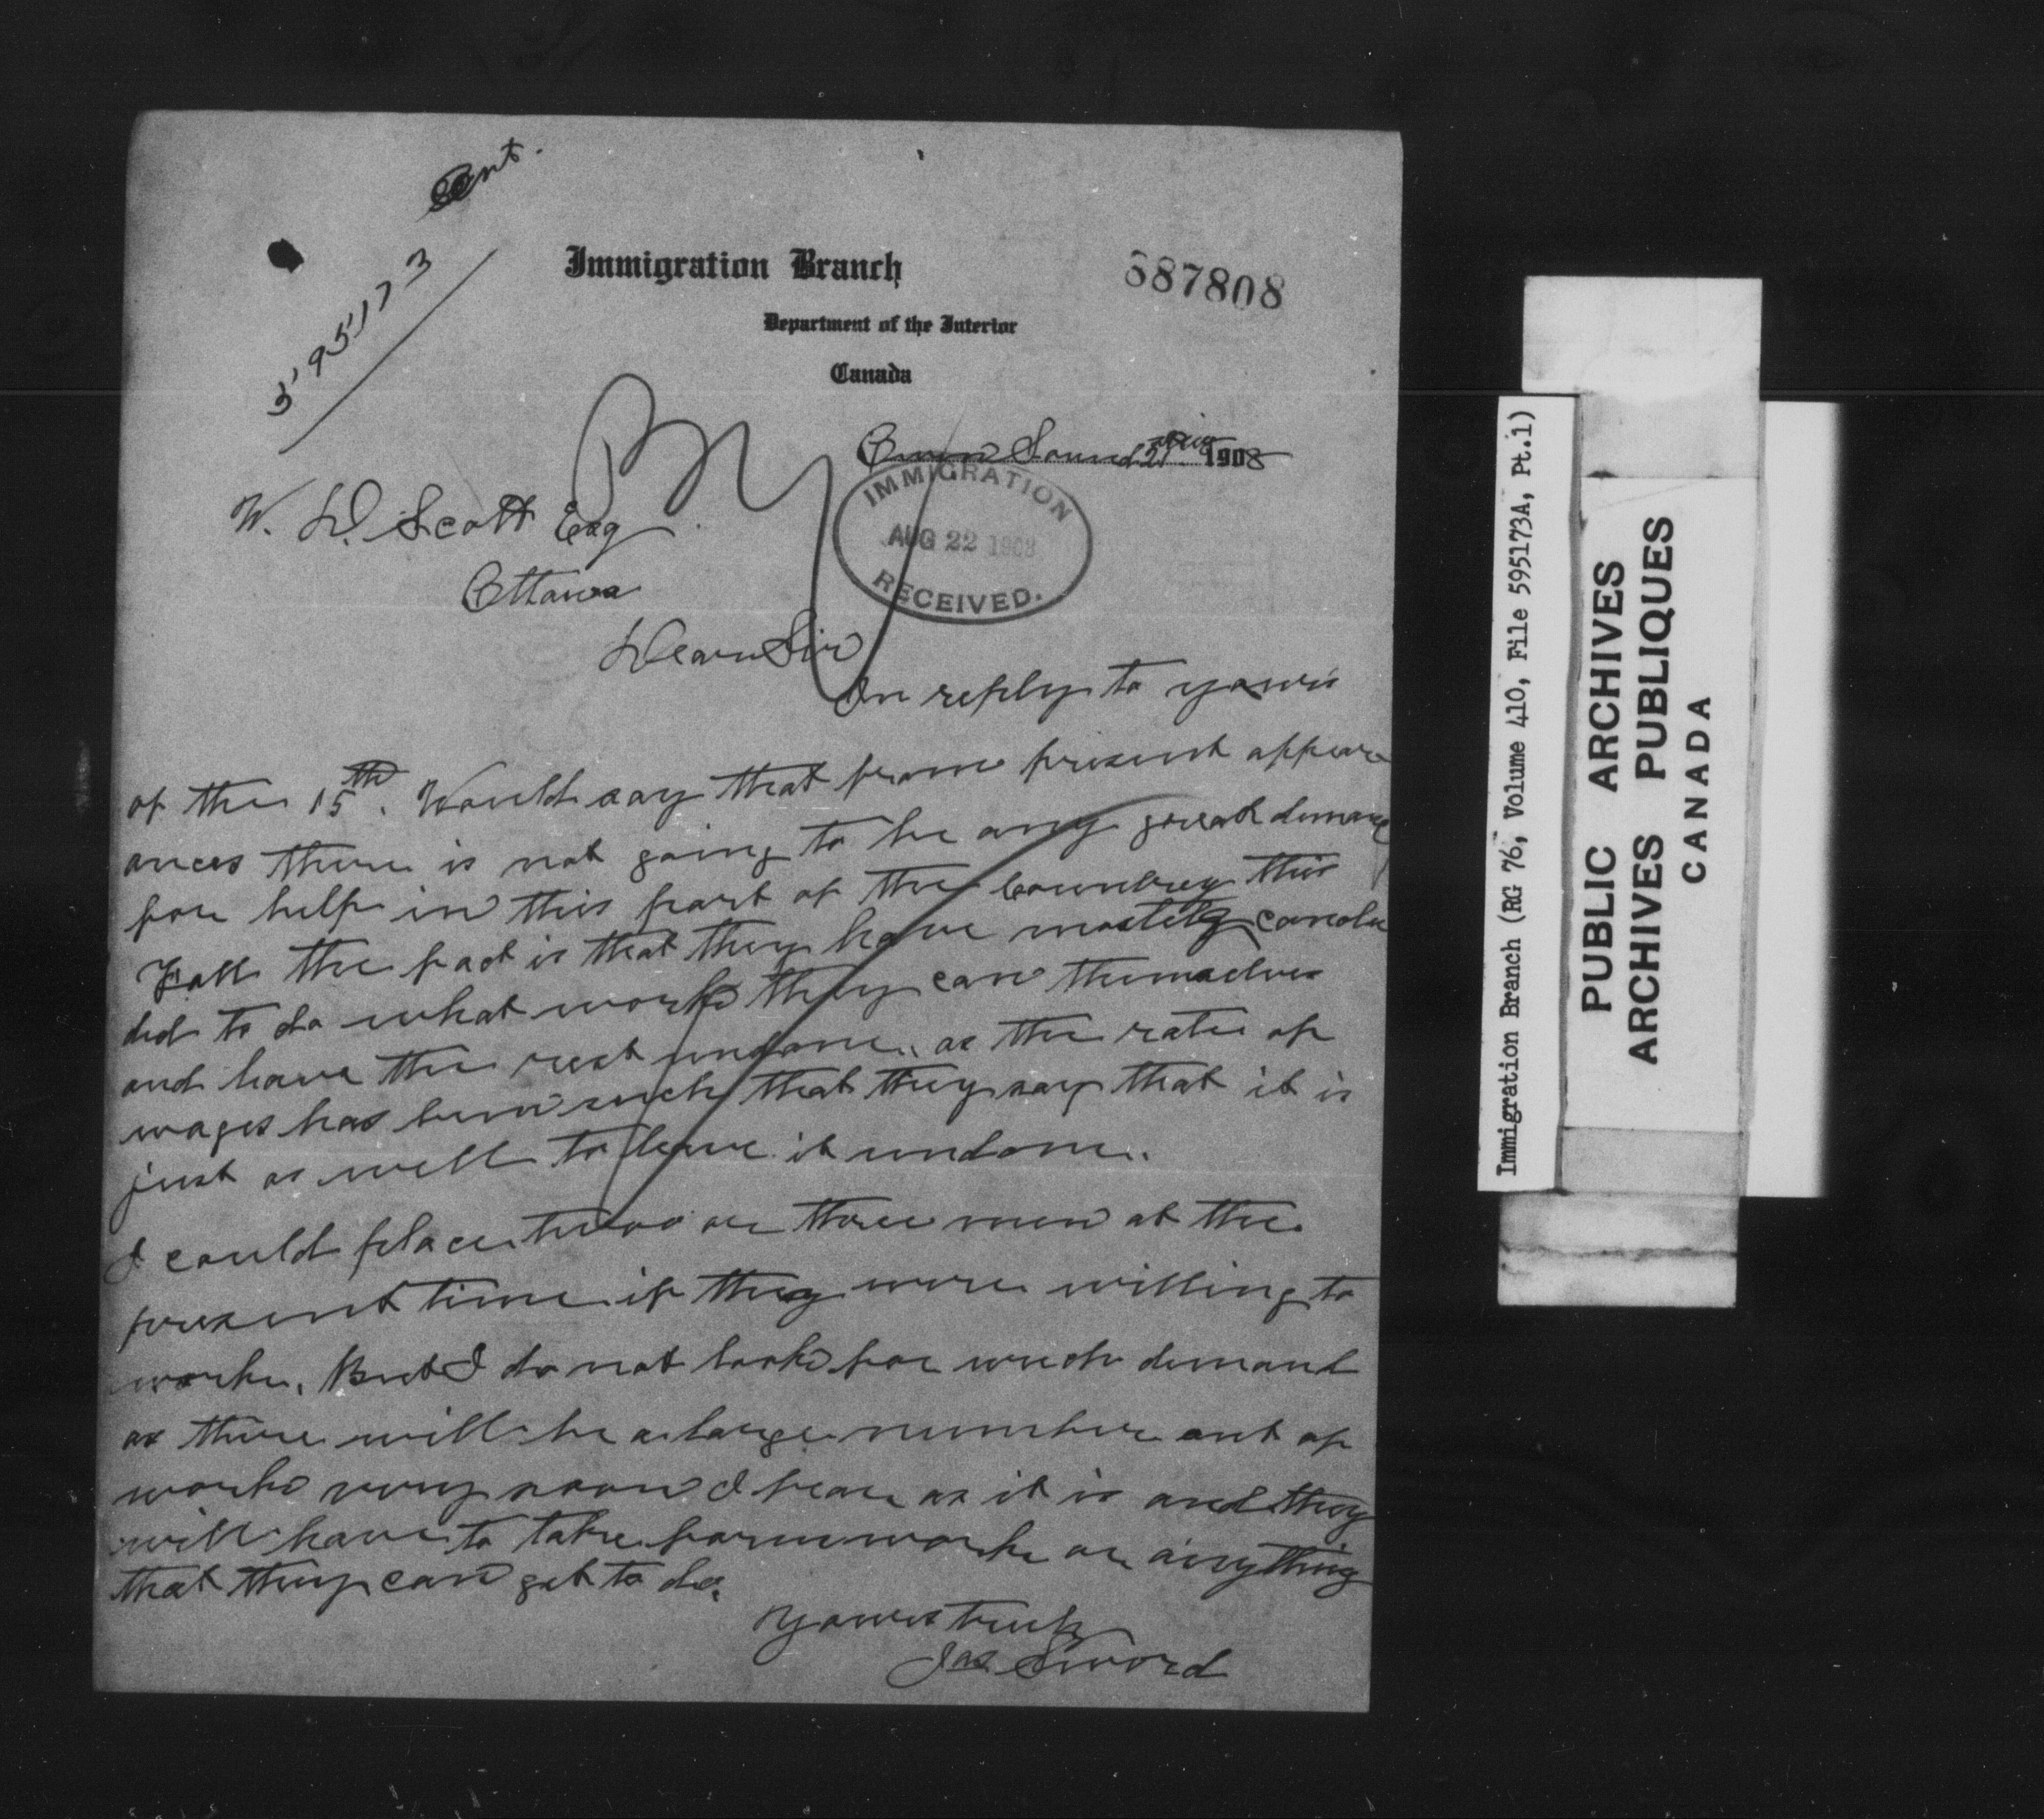 Ont.
595173
Immigration Branch
687808
Department of the Interior
Canada
Owen Sound 21 Aug 1908
IMMIGRATION
AUG 22 1908
RECEIVED.
W. D. Scott Esq
Ottawa
Dear Sir
In reply to yours
of the 15th. Would say that from present appear
ances there is not going to be any great demand
for help in this part of the Country this
Fall the fact is that they have mostly conclu
ded to do what work they can themselves
and leave the rest undone, as the rate of
wages has been such that they say that it is
just as well to leave it undone.
I could place two or three men at the
present time if they were willing to
work. But I do not look for much demand
as there will be a large number out of
work very soon I fear as it is and they
will have to take farm work or anything
that they can get to do.
Yours truly
Jas Sword
Immigration Branch (RG 76, Volume 410, File 595173A, Pt.1)
PUBLIC ARCHIVES
ARCHIVES PUBLIQUES
CANADA